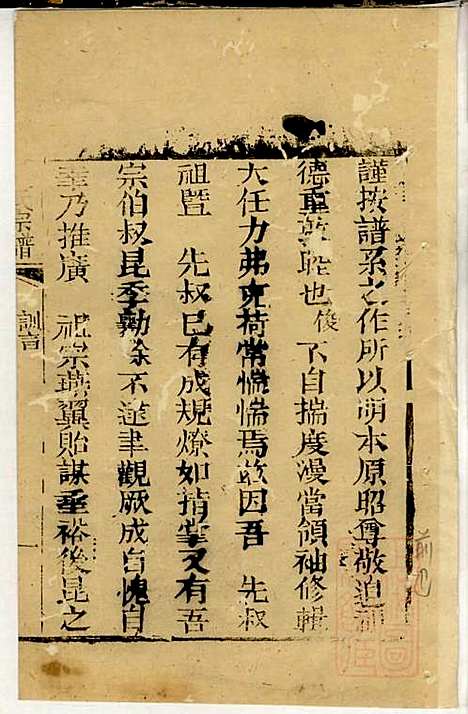 謹按譜系之作所以明本原昭尊敬追
德重敦睦也俊不自揣度漫當領袖修輯
大任力弗克荷常惴惴焉故因吾 先叔
祖暨 先叔已有成規燎如指掌又有吾
宗伯叔昆季勷余不逮聿觀厥成自愧自
幸乃推廣 祖宗燕翼貽謀垂裕後昆之
宗譜
訓言
一